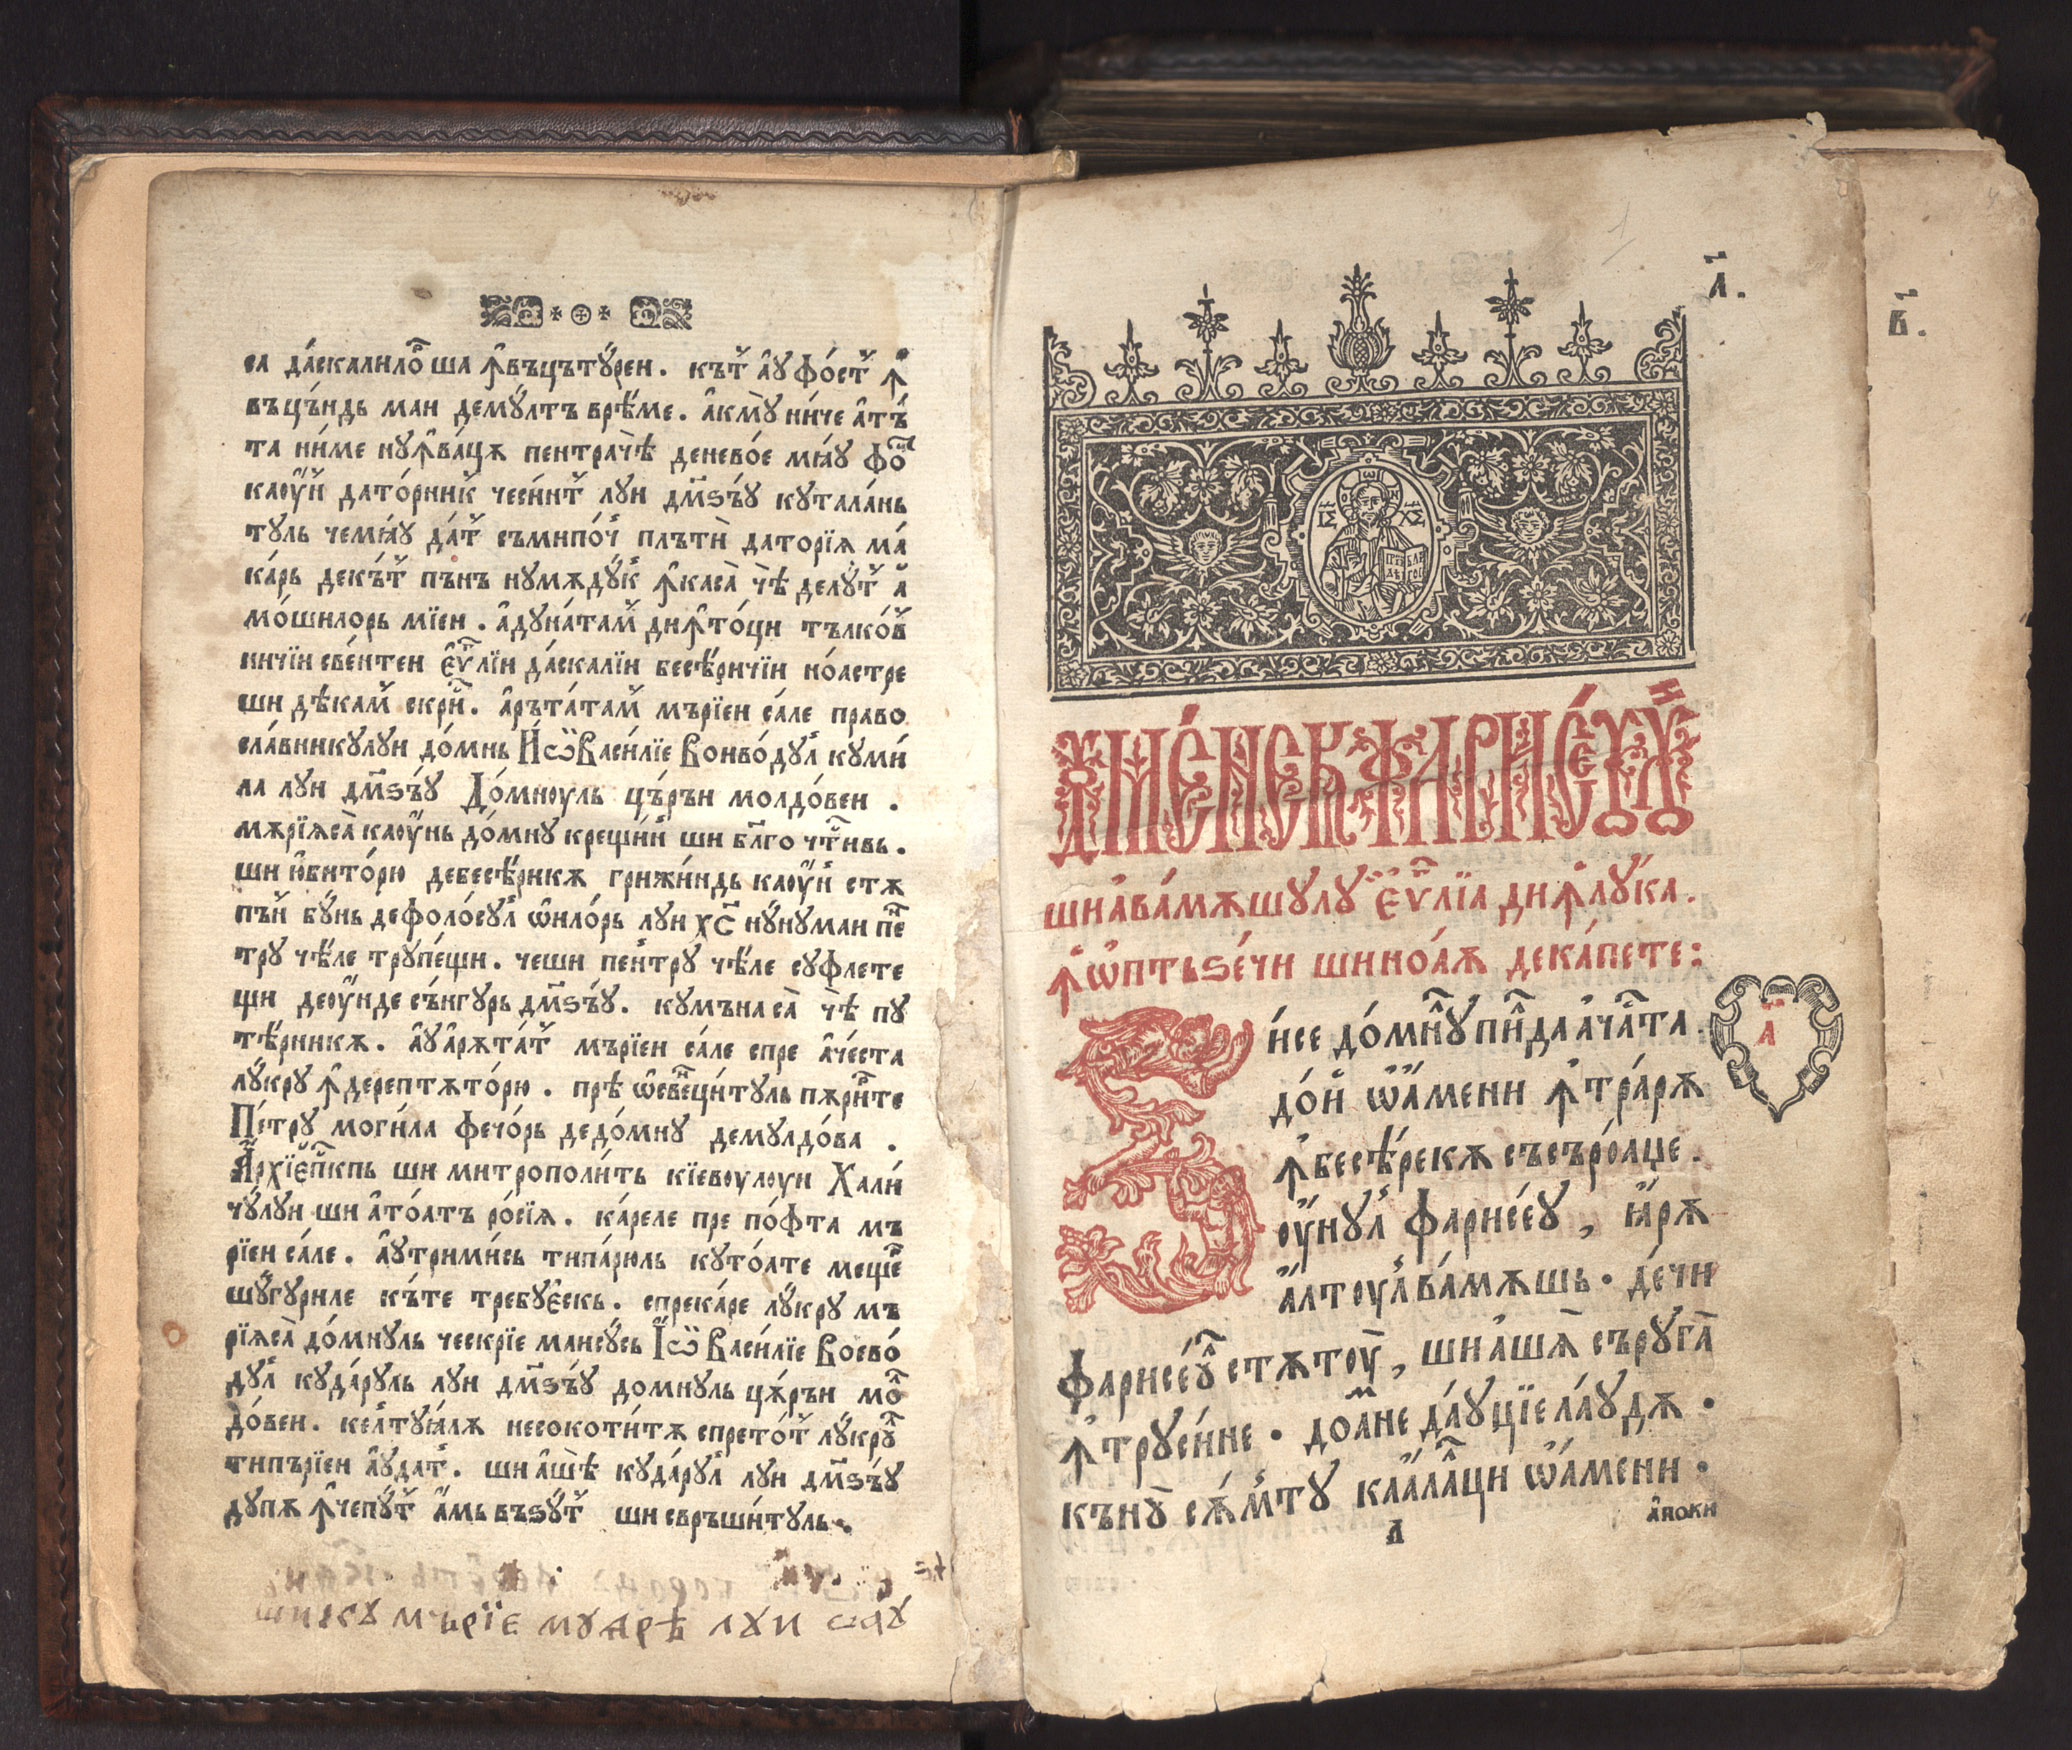 са да́скалило҇ ша ꙟ҆въцъту́реи. къ́т҇ а҆ꙋ фо́ст҇ ꙟ҆
въцъ́ндь маи дему́лтъ врѣ́ме. а҆кмꙋ̀ ни́че а҆тъ́
та ни́ме нꙋꙟ҆ва́цѫ пентрачѣ̀ деневое мїꙋ фо҇
каоу҆н҇ дато́рник҇ чеси́нт҇ лꙋи дм҃ѕъ́ꙋ кꙋтала́нь
тꙋль чемїꙋ да́т҇ съмипо́ч҇ плътѝ даторїѧ ма́
ка́рь декъ́т҇ пънъ нꙋмѫдꙋ́к҇ ꙟ҆каса̀ чѣ̀ делꙋ́т҇ а҆
мо́шилорь мїеи. а҆дꙋна́там҇ диꙟ҆то́ци тълко́в҇
ничїи све́нтеи є҆ѵ҃лїи да́скалїи бесѣ́ричїи ноастре
ши дѣкам҇ скри҇. а҆рътатам҇ мърїеи са́ле право
сла́вникꙋлꙋи до́мнь И҆ѡ҃ Васи́лїе Воиво́дꙋл҇ кꙋми́
ла лꙋи дм҃ѕъ́ꙋ До́мноуль цъ́ръи молдо́веи.
мѫрїѧса̀ каоу҆нь до́мнꙋ крещи́н҇ ши бл҃гочт҃ивь.
ши ю҆бито́рю дебесѣ́рикѫ грижи́ндь каоу҆н҇ стѫ
пъ́н҇ бꙋ́нь дефоло́сꙋл҇ ѡ҆ило́рь лꙋи хс҃ нꙋ́нꙋмаи пе҇
трꙋ чѣ́ле трꙋпе́щи. чеши пе́нтрꙋ чѣ́ле сꙋфлете
щи деоу҆нде съ́нгꙋрь дм҃ѕъ́ꙋ. кꙋмъна са̀ чѣ̀ пꙋ
тѣ́рникѫ. а҆ꙋа҆рѫта́т҇ мърїеи са́ле спре а҆че́ста
лꙋ́крꙋ ꙟ҆дерептѫто́рю. прѣ ѡ҆све҇ци́тꙋль пѫри҇те
Пе́трꙋ моги́ла фечо́рь дедо́мнꙋ демꙋлдо́ва.
А҆рхїеп҃кпь ши митрополи́ть кїевоулоуи Хали́
чꙋ́лꙋи ши а҆то́атъ ро́сїѧ. ка́реле пре по́фта мъ
рїеи са́ле. а҆ꙋтрими́сь типа́рюль кꙋто́ате меще҇
шꙋ́гꙋриле къ́те требꙋе́скь. спрека́ре лꙋ́крꙋ мъ
рїѧса̀ до́мнꙋль ческрїе маисꙋ́сь І҆ѡ҃ Васи́лїе Воево́
дꙋл҇ кꙋда́рꙋль лꙋи дм҃ѕъ́ꙋ домнꙋль цѫ́ръи мо҇
до́веи. келтꙋїа́лѫ несокоти́тѫ спрето́т҇ лꙋ́крꙋ҇
типърїеи а҆ꙋдат҇. ши а҆шѣ̀ кꙋда́рꙋл҇ лꙋи дм҃ѕъ́ꙋ
дꙋпѫ ꙟ҆чепꙋ́т҇ а҆мь въѕꙋ́т҇ ши свръши́тꙋль.
шикꙋ мърїе мꙋарѣ лꙋи
л҃.
в҃.
Дꙋме́нека фарисе́ꙋлꙋи
шиа҆ва́мѫшꙋлꙋ є҆ѵ҃лїа диꙟ҆ лꙋ́ка.
ꙟ҆ ѡ҆птьѕе́чи шино́аѫ дека́пете:
а҃
Зи́се до́мн҇ꙋ пи҇да ача҇та.
до́и҇ ѡ҆а́мени ꙟ҆тра́рѫ
ꙟ҆бесѣ́рекѫ съсъро́аце.
оу҆нꙋл҇ фарисе́ꙋ, їа́рѫ
а҆лтоул҇ ва́мѫшь. де́чи
фарисе́ꙋ҇ стѫтоу̀, шиа҆шѧ̀ съ рꙋга̀
ꙟ҆трꙋси́не. до҇а́мне да́ꙋцїе ла́ꙋдѫ.
къ нꙋ̀ сѫ́мтꙋ кала҇ци ѡ҆а́мени.
а
а҆поки